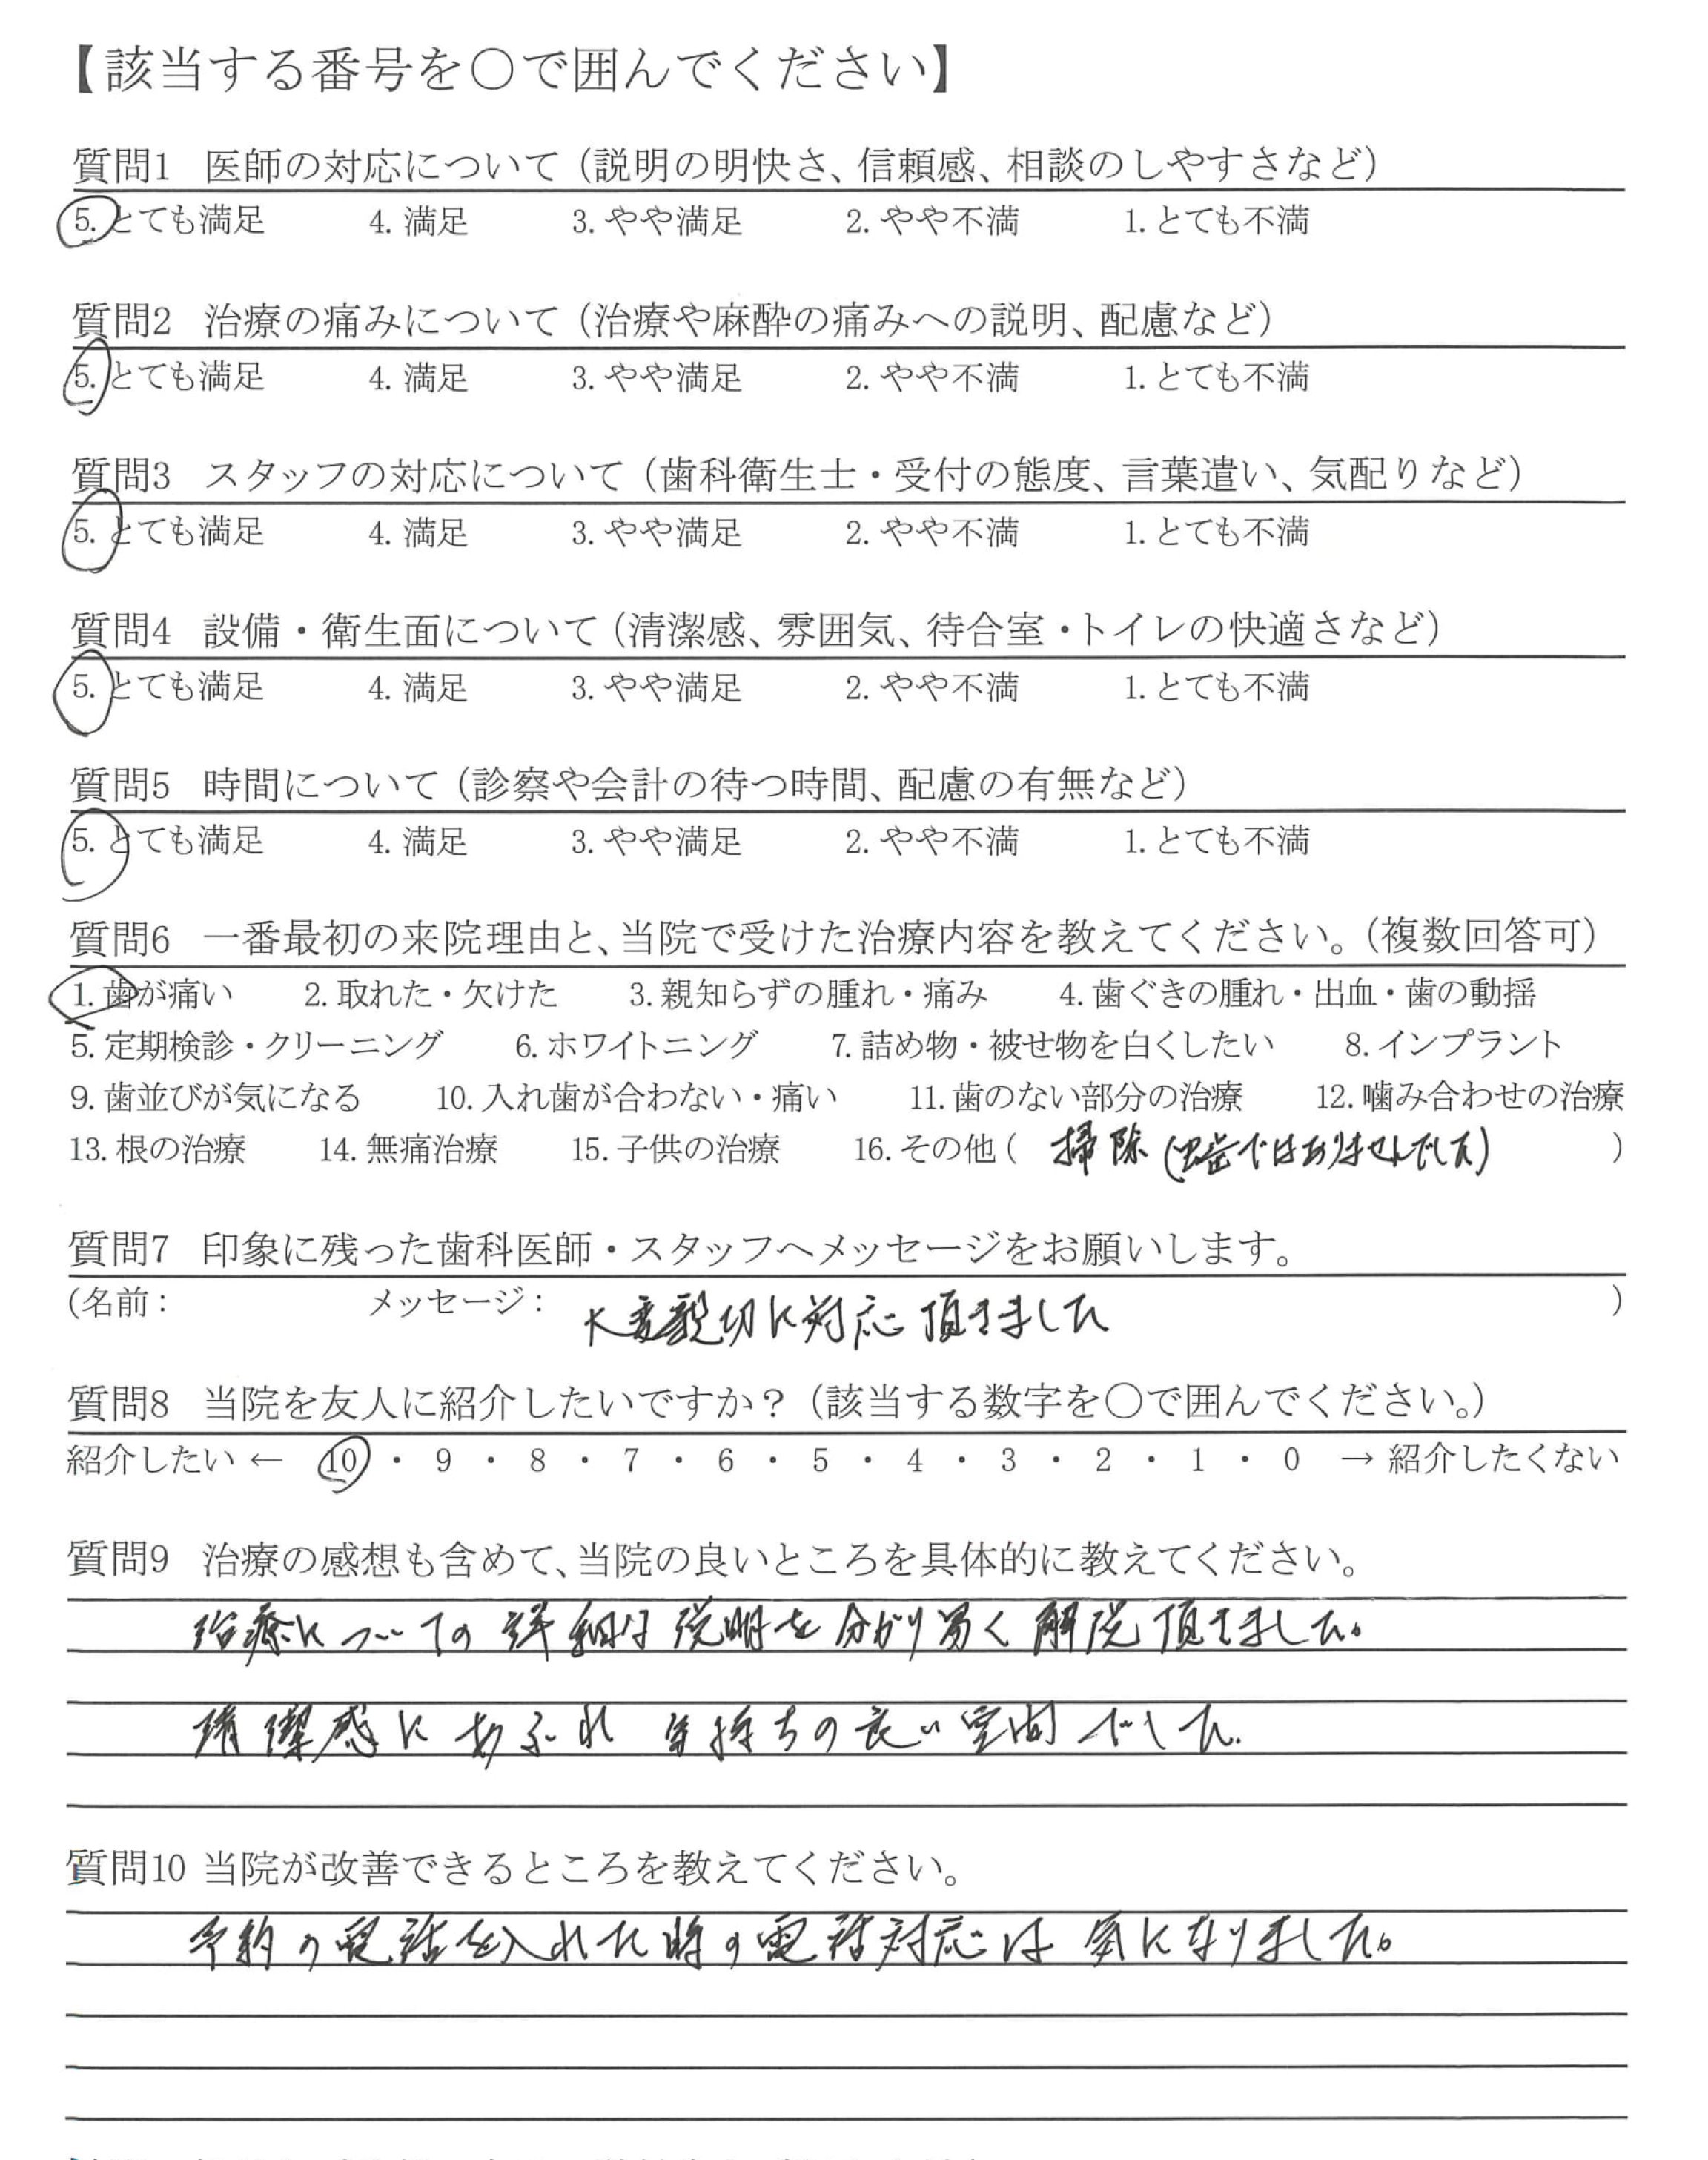 【該当する番号を〇で囲んでください】
質問1 医師の対応について（説明の明快さ、信頼感、相談のしやすさなど）
5. とても満足 4. 満足 3. やや満足 2. やや不満 1. とても不満
質問2 治療の痛みについて（治療や麻酔の痛みへの説明、配慮など）
5. とても満足 4. 満足 3. やや満足 2. やや不満 1. とても不満
質問3 スタッフの対応について（歯科衛生士・受付の態度、言葉遣い、気配りなど）
5. とても満足 4. 満足 3. やや満足 2. やや不満 1. とても不満
質問4 設備・衛生面について（清潔感、雰囲気、待合室・トイレの快適さなど）
5. とても満足 4. 満足 3. やや満足 2. やや不満 1. とても不満
質問5 時間について（診察や会計の待つ時間、配慮の有無など）
5. とても満足 4. 満足 3. やや満足 2. やや不満 1. とても不満
質問6 一番最初の来院理由と、当院で受けた治療内容を教えてください。（複数回答可）
1. 歯が痛い 2. 取れた・欠けた 3. 親知らずの腫れ・痛み 4. 歯ぐきの腫れ・出血・歯の動揺
5. 定期検診・クリーニング 6. ホワイトニング 7. 詰め物・被せ物を白くしたい 8. インプラント
9. 歯並びが気になる 10. 入れ歯が合わない・痛い 11. 歯のない部分の治療 12. 噛み合わせの治療
13. 根の治療 14. 無痛治療 15. 子供の治療 16. その他（掃除（虫歯ではありませんでした））
質問7 印象に残った歯科医師・スタッフへメッセージをお願いします。
（名前： メッセージ： 大変親切に対応頂きました ）
質問8 当院を友人に紹介したいですか？（該当する数字を〇で囲んでください。）
紹介したい ← 10 ・ 9 ・ 8 ・ 7 ・ 6 ・ 5 ・ 4 ・ 3 ・ 2 ・ 1 ・ 0 → 紹介したくない
質問9 治療の感想も含めて、当院の良いところを具体的に教えてください。
治療についての詳細な説明を分かり易く解説頂きました。
清潔感にあふれ 気持ちの良い空間でした。
質問10 当院が改善できるところを教えてください。
予約の電話を入れた時の電話対応は気になりました。